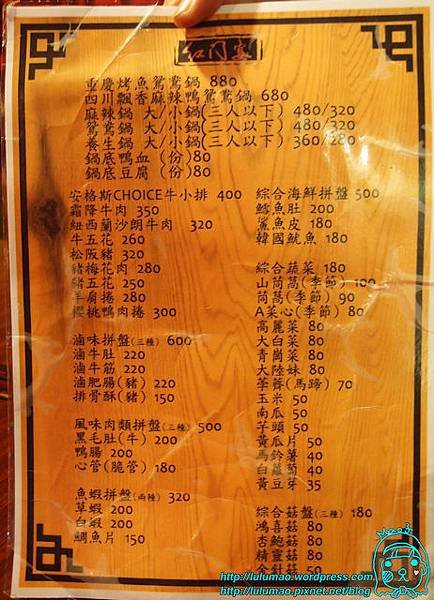 紅門宴
重慶烤魚鴛鴦鍋 880
四川飄香麻辣鴨鴛鴦鍋 680
麻辣鍋 大/小鍋(三人以下) 480/320
鴛鴦鍋 大/小鍋(三人以下) 480/320
養生鍋 大/小鍋(三人以下) 360/280
鍋底鴨血 (份)80
鍋底豆腐 (份)80
安格斯CHOICE牛小排 400
霜降牛肉 350
紐西蘭沙朗牛肉 320
牛五花 260
松阪豬 320
豬梅花肉 280
豬五花 250
羊肩捲 280
櫻桃鴨肉捲 300
滷味拼盤(三種) 600
滷牛肚 220
滷牛筋 220
滷肥腸(豬) 220
排骨酥(豬) 150
風味肉類拼盤(三種) 500
黑毛肚(牛) 200
鴨腸 200
心管(脆管) 180
魚蝦拼盤(兩種) 320
草蝦 200
白蝦 200
鯛魚片 150
綜合海鮮拼盤 500
鱈魚肚 200
鯊魚皮 180
韓國魷魚 180
綜合蔬菜 180
山茼萵(季節) 100
茼萵(季節) 90
A菜心(季節) 80
高麗菜 80
大白菜 80
青崗菜 80
大陸妹 80
荸薺(馬蹄) 70
玉米 50
南瓜 50
芋頭 50
黃瓜片 50
馬鈴薯 40
白蘿蔔 40
黃豆芽 35
綜合菇盤(三種) 180
鴻喜菇 80
杏鮑菇 80
精靈菇 80
金針菇 50
Mao
http://lulumao.wordpress.com
http://lulumao.pixnet.net/blog